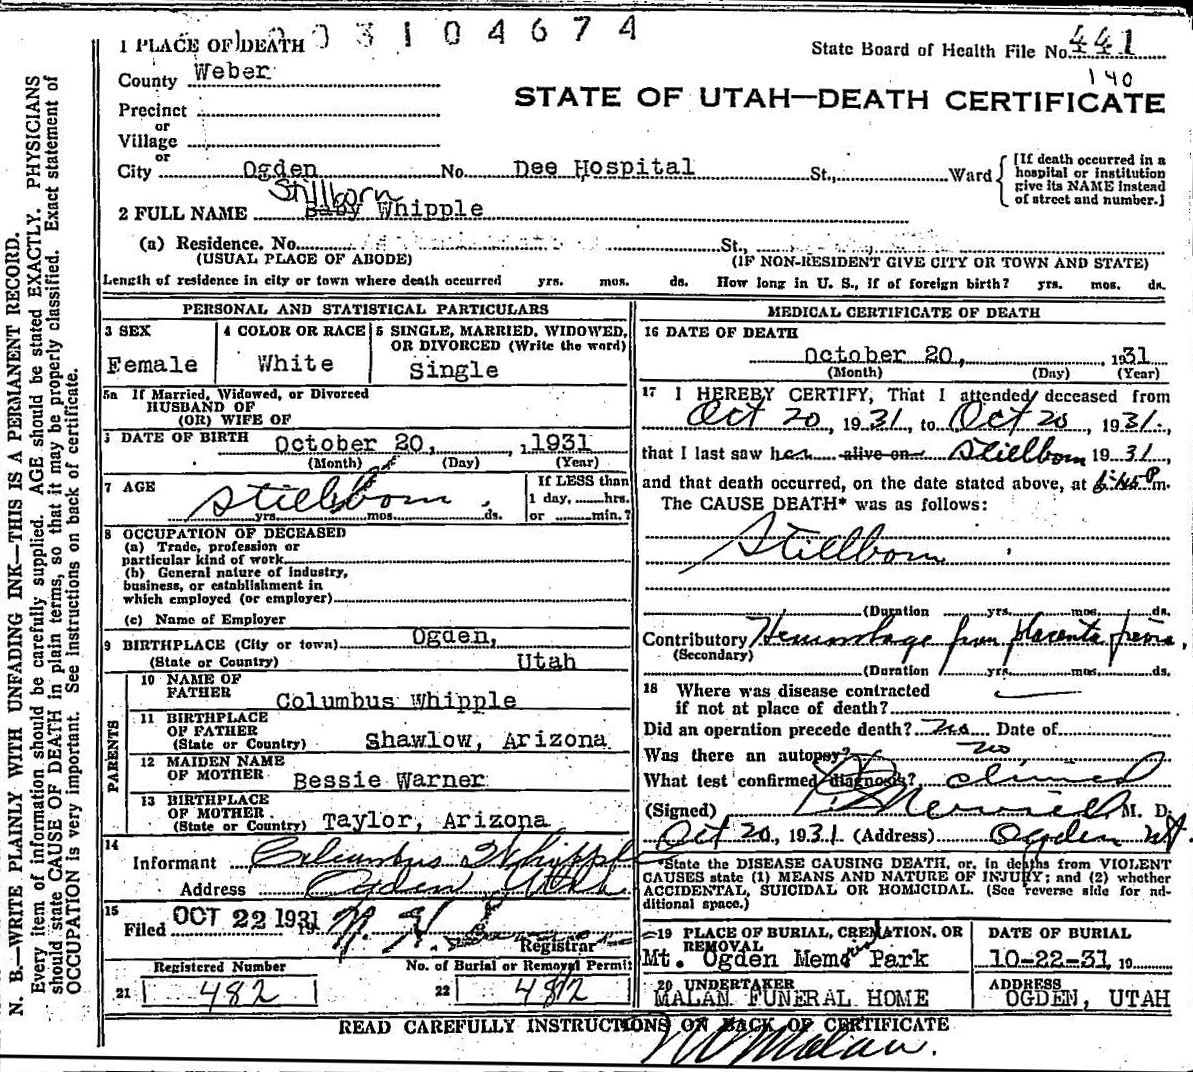 3 1 0 4 6 7 4
1 PLACE OF DEATH
State Board of Health File No. 441
140
County Weber
STATE OF UTAH—DEATH CERTIFICATE
Precinct
or
Village
or
City Ogden No. Dee Hospital St., Ward
[If death occurred in a
hospital or institution
give its NAME instead
of street and number.]
Stillborn
2 FULL NAME Baby Whipple
(a) Residence. No. St.,
(USUAL PLACE OF ABODE) (IF NON-RESIDENT GIVE CITY OR TOWN AND STATE)
Length of residence in city or town where death occurred yrs. mos. ds. How long in U. S., if of foreign birth? yrs. mos. ds.
PERSONAL AND STATISTICAL PARTICULARS
3 SEX
Female
4 COLOR OR RACE
White
5 SINGLE, MARRIED, WIDOWED,
OR DIVORCED (Write the word)
Single
5a If Married, Widowed, or Divorced
HUSBAND OF
(OR) WIFE OF
DATE OF BIRTH October 20, 1931
(Month) (Day) (Year)
7 AGE
Stillborn
yrs. mos. ds.
If LESS than
1 day, hrs.
or min.?
8 OCCUPATION OF DECEASED
(a) Trade, profession or
particular kind of work
(b) General nature of industry,
business, or establishment in
which employed (or employer)
(c) Name of Employer
9 BIRTHPLACE (City or town) Ogden,
(State or Country) Utah
PARENTS
10 NAME OF
FATHER Columbus Whipple
11 BIRTHPLACE
OF FATHER
(State or Country) Shawlow, Arizona
12 MAIDEN NAME
OF MOTHER Bessie Warner
13 BIRTHPLACE
OF MOTHER
(State or Country) Taylor, Arizona
14
Informant Columbus Whipple
Address Ogden, Utah
15
Filed OCT 22 1931
Registrar
Registered Number
21 482
No. of Burial or Removal Permit
22 482
MEDICAL CERTIFICATE OF DEATH
16 DATE OF DEATH
October 20, 1931
(Month) (Day) (Year)
17 I HEREBY CERTIFY, That I attended deceased from
Oct 20, 1931, to Oct 20, 1931,
that I last saw her alive on Stillborn 1931,
and that death occurred, on the date stated above, at m.
The CAUSE DEATH* was as follows:
Stillborn
(Duration yrs. mos. ds.
Contributory Hemorrhage from placenta previa,
(Secondary)
(Duration yrs. mos. ds.
18 Where was disease contracted
if not at place of death?
Did an operation precede death? No Date of
Was there an autopsy? no
What test confirmed diagnosis? clinical
(Signed) Merrill M. D.
Oct 20, 1931 (Address) Ogden Ut
*State the DISEASE CAUSING DEATH, or, in deaths from VIOLENT
CAUSES state (1) MEANS AND NATURE OF INJURY; and (2) whether
ACCIDENTAL, SUICIDAL OR HOMICIDAL. (See reverse side for ad-
ditional space.)
19 PLACE OF BURIAL, CREMATION, OR
REMOVAL
Mt. Ogden Memo Park
DATE OF BURIAL
10-22-31, 19
20 UNDERTAKER
MALAN FUNERAL HOME
ADDRESS
OGDEN, UTAH
READ CAREFULLY INSTRUCTIONS ON BACK OF CERTIFICATE
Malan.
N. B.—WRITE PLAINLY WITH UNFADING INK—THIS IS A PERMANENT RECORD.
Every item of information should be carefully supplied. AGE should be stated EXACTLY. PHYSICIANS
should state CAUSE OF DEATH in plain terms, so that it may be properly classified. Exact statement of
OCCUPATION is very important. See instructions on back of certificate.